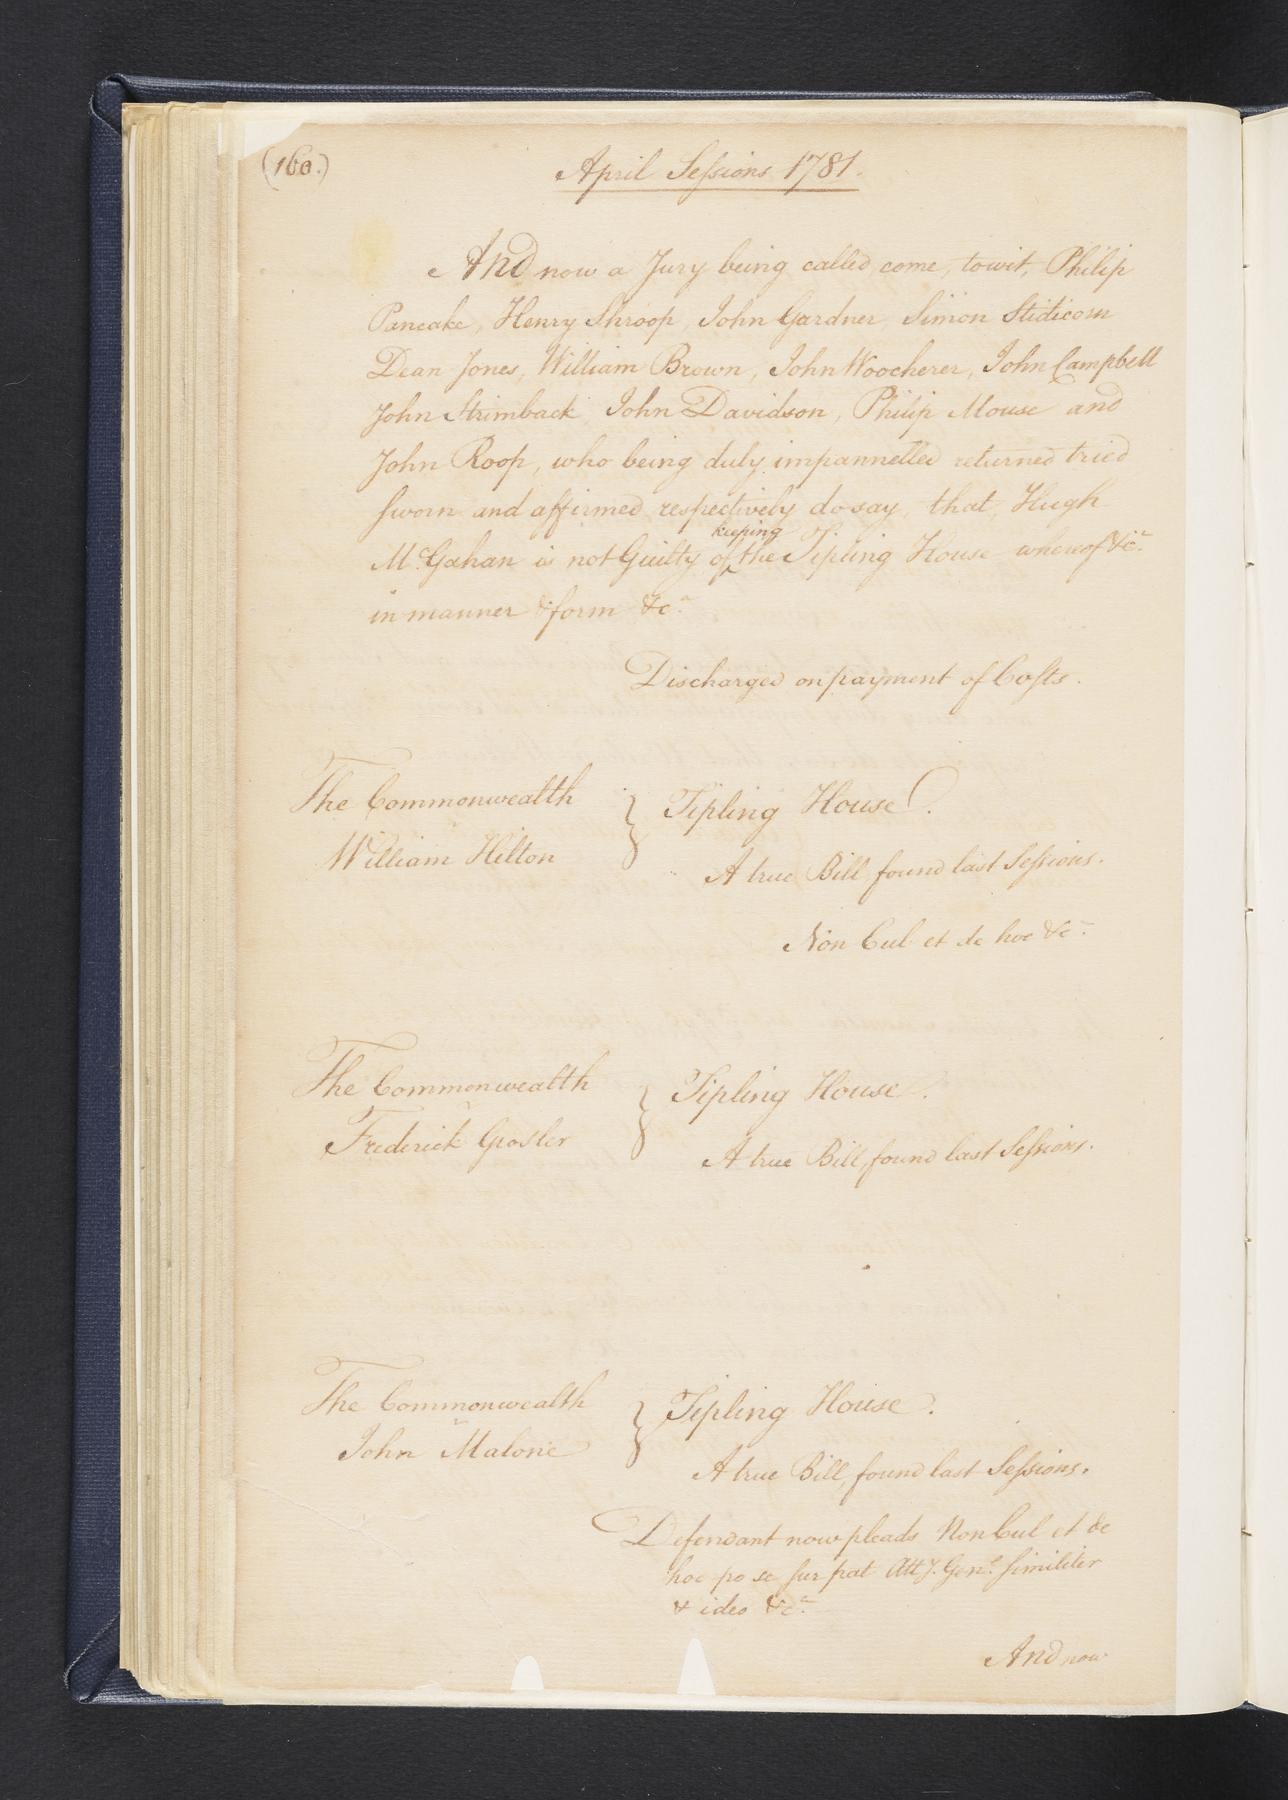 (160.)
April Sessions 1781.
And now a Jury being called, come, towit, Philip
Pancake, Henry Shroop, John Gardner, Simon Stidicom
Dean Jones, William Brown, John Woocherer, John Campbell
John Strimback, John Davidson, Philip Mouse and
John Roop, who being duly impannelled returned tried
sworn and affirmed respectively do say, that, Hugh
keeping
McGahan is not Guilty of the Tipling House whereof &c.
in manner & form &c.
Discharged on payment of Costs.
The Commonwealth
v
William Hilton
} Tipling House.
A true Bill, found last Sessions.
Non Cul et de hoc &c.
The Commonwealth
v
Frederick Gosler
} Tipling House.
A true Bill, found last Sessions.
The Commonwealth
v
John Malone
} Tipling House.
A true Bill, found last Sessions.
Defendant now pleads Non Cul et de
hoc po se sur pat Atty. Genl. similiter
& ideo &c.
And now